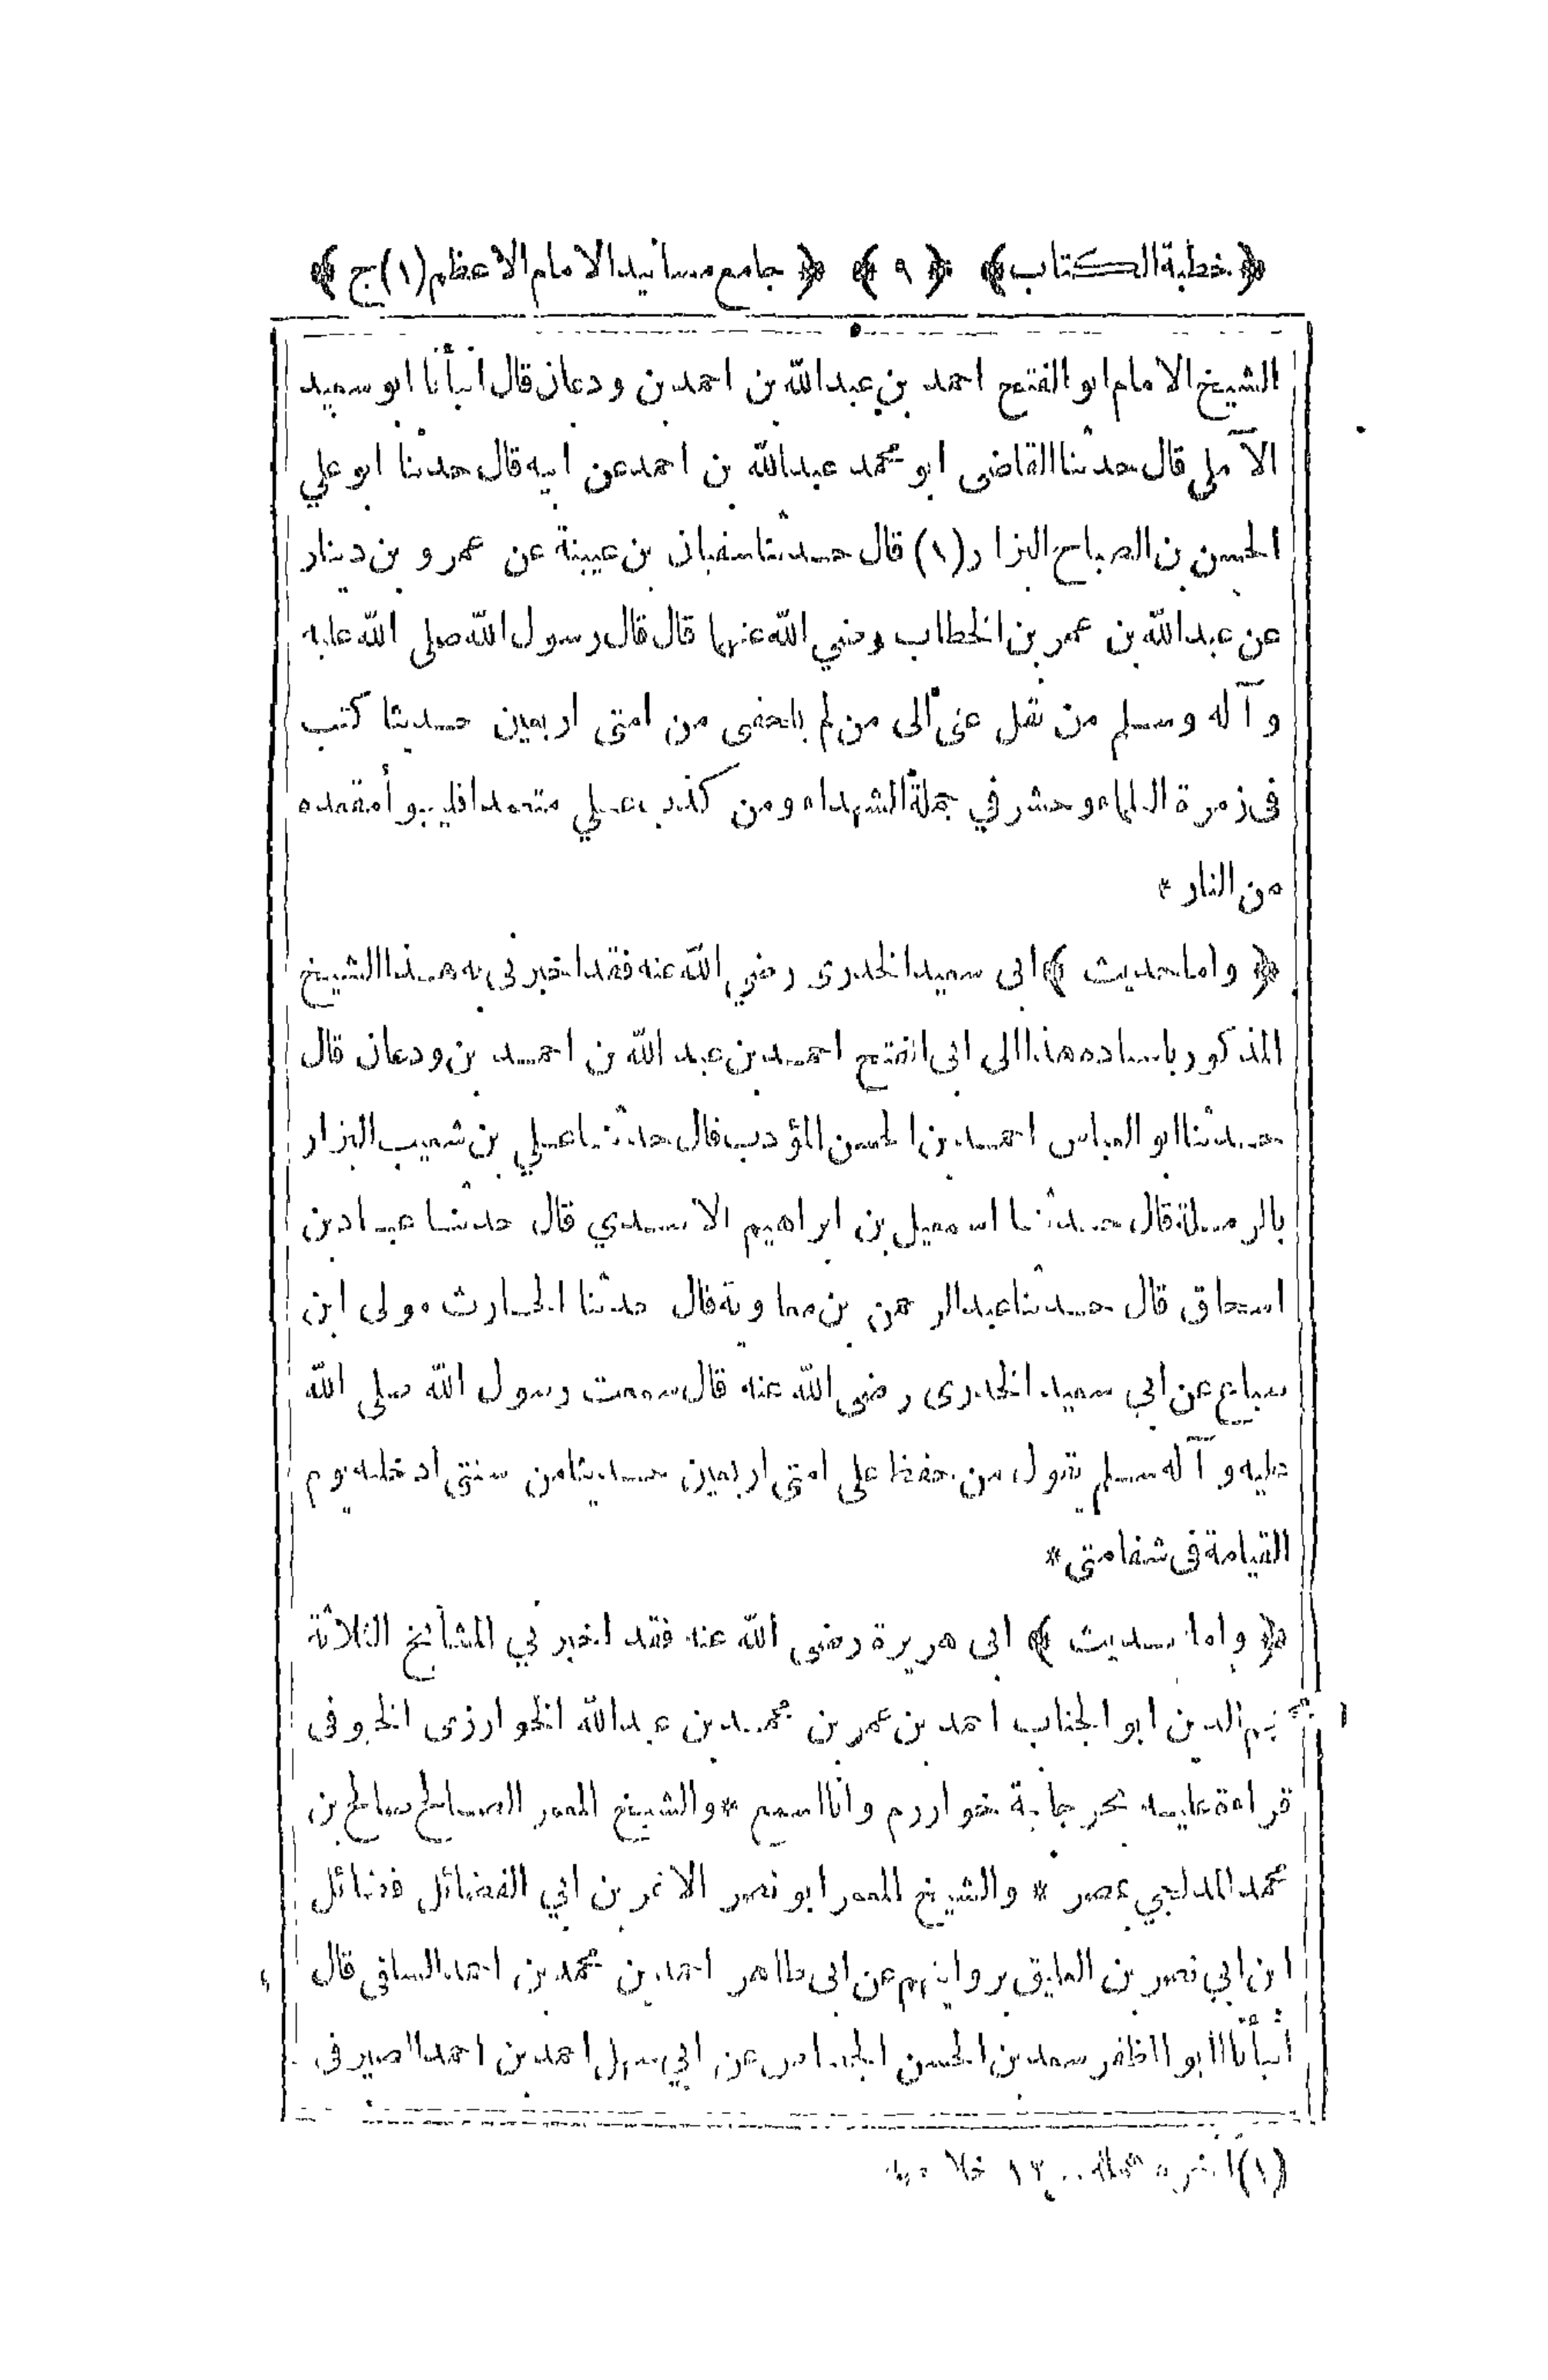 ﴿ خطبة الكتاب ﴾ ﴿ ٩ ﴾ ﴿ جامع مسانيد الامام الاعظم (١) ج ﴾
الشيخ الامام ابو الفتح احمد بن عبد الله بن احمد بن ودعان قال انبأنا ابو سعيد
الآملى قال حدثنا القاضى ابو محمد عبد الله بن احمد عن ابيه قال حدثنا ابو علي
الحسن بن الصباح البزار (١) قال حدثنا سفيان بن عيينة عن عمرو بن دينار
عن عبد الله بن عمر بن الخطاب رضي الله عنهما قال قال رسول الله صلى الله عليه
وآله وسلم من نقل عنى الى من لم يلحقنى من امتى اربعين حديثا كتب
فى زمرة العلماء وحشر في جملة الشهداء ومن كذب علي متعمدا فليتبوأ مقعده
من النار *
﴿ واما حديث ﴾ ابى سعيد الخدرى رضي الله عنه فقد اخبرنى به هذا الشيخ
المذكور باسناده هذا الى ابى الفتح احمد بن عبد الله بن احمد بن ودعان قال
حدثنا ابو العباس احمد بن الحسن المؤدب قال حدثنا علي بن شعيب البزار
بالرملة قال حدثنا اسمعيل بن ابراهيم الاسدي قال حدثنا عباد بن
اسحاق قال حدثنا عبد الرحمن بن معاوية قال حدثنا الحارث مولى ابن
سباع عن ابي سعيد الخدرى رضى الله عنه قال سمعت رسول الله صلى الله
عليه وآله وسلم يقول من حفظ على امتى اربعين حديثا من سنتى ادخلته يوم
القيامة فى شفاعتى *
﴿ واما حديث ﴾ ابى هريرة رضى الله عنه فقد اخبرني المشائخ الثلاثة
نجم الدين ابو الجناب احمد بن عمر بن محمد بن عبد الله الخوارزى الخيوفى
قراءة عليه بجرجانية خوارزم وانا اسمع * والشيخ المعمر الصالح صالح بن
محمد المدلجي بمصر * والشيخ المعمر ابو نصر الاغر بن ابي الفضائل فضائل
ابن ابي نصر بن العليق بروايتهم عن ابى طاهر احمد بن محمد بن احمد السلفى قال
انبأنا ابو المظفر سعد بن الحسن عن ابي سهل احمد بن احمد الصيرفى
(١) خلا